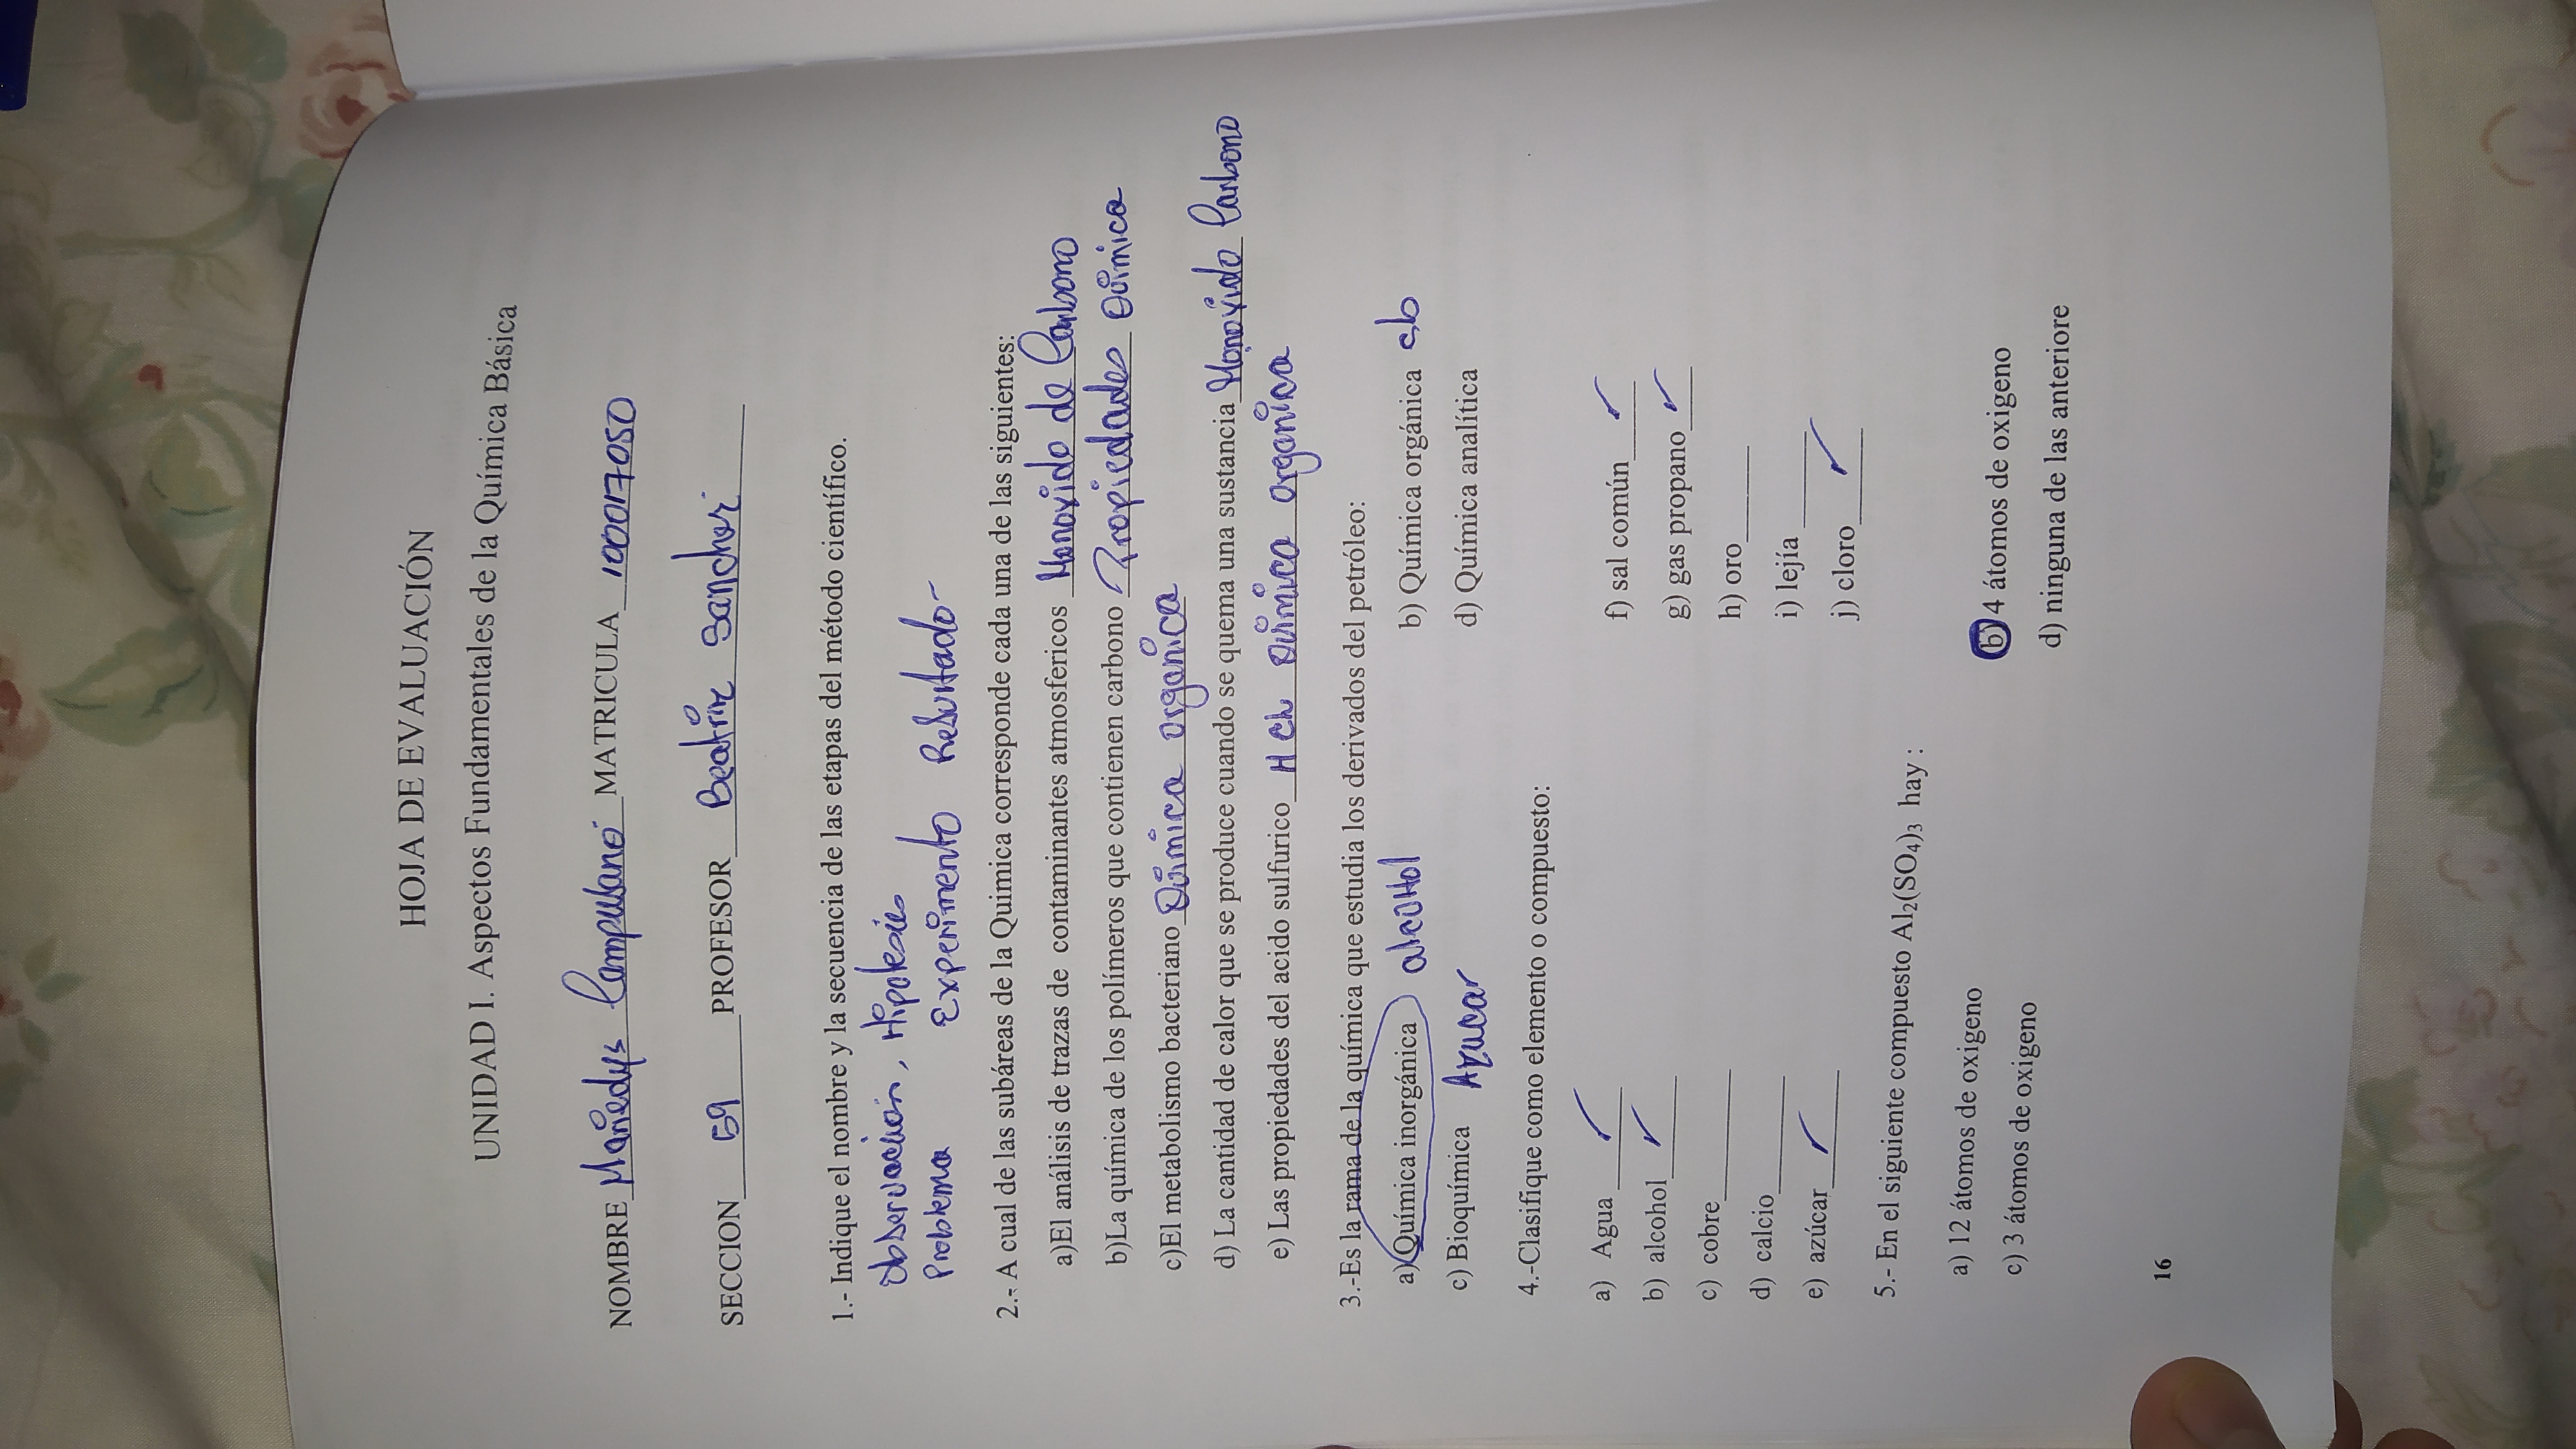 HOJA DE EVALUACIÓN
UNIDAD I. Aspectos Fundamentales de la Química Básica
NOMBRE Mariedys Campusano MATRICULA 100017050
SECCION 59 PROFESOR Beatriz Sanchez
1.- Indique el nombre y la secuencia de las etapas del método científico.
Observacion, Hipotesis
Problema Experimento Resultado-
2.- A cual de las subáreas de la Quimica corresponde cada una de las siguientes:
a)El análisis de trazas de contaminantes atmosfericos Monoxido de Carbono
b)La química de los polímeros que contienen carbono Propiedades Quimica
c)El metabolismo bacteriano Quimica organica
d) La cantidad de calor que se produce cuando se quema una sustancia Monoxido Carbono
e) Las propiedades del acido sulfurico H Quimica organica
3.-Es la rama de la química que estudia los derivados del petróleo:
a) Química inorgánica alcoHol b) Química orgánica cb
c) Bioquímica Azucar d) Química analítica
4.-Clasifique como elemento o compuesto:
a) Agua ✓ f) sal común ✓
b) alcohol ✓ g) gas propano ✓
c) cobre h) oro
d) calcio i) lejía
e) azúcar ✓ j) cloro ✓
5.- En el siguiente compuesto Al₂(SO₄)₃ hay :
a) 12 átomos de oxigeno b) 4 átomos de oxigeno
c) 3 átomos de oxigeno d) ninguna de las anteriore
16